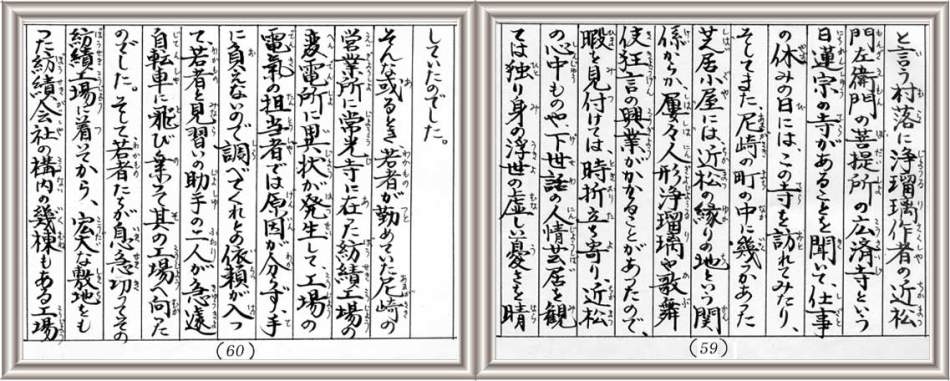 と言う村落に浄瑠璃作者の近松
門左衛門の菩提所の広済寺という
日蓮宗の寺があることを聞いて、仕事
の休みの日には、この寺を訪れてみたり、
そしてまた、尼崎の町の中に幾つかあった
芝居小屋には、近松の縁りの地という関
係からか屡々人形浄瑠璃や歌舞
伎狂言の興業がかかることがあったので、
暇を見付けては、時折立ち寄り、近松
の心中ものや、下世話の人情芝居を観
ては独り身の浮世の虚しい憂さを晴
(59)
していたのでした。
そんな或るとき若者が勤めていた尼崎の
営業所に常光寺に在った紡績工場の
変電所に異状が発生して工場の
電氣の担当者では原因が分らず、手
に負えないので調べてくれとの依頼が入っ
て、若者と見習いの助手の二人が急遽
自転車に飛び乗って其の工場へ向った
のでした。そして、若者たちが息急切ってその
紡績工場に着いてから、宏大な敷地をも
った紡績会社の構内の幾棟もある工場
(60)